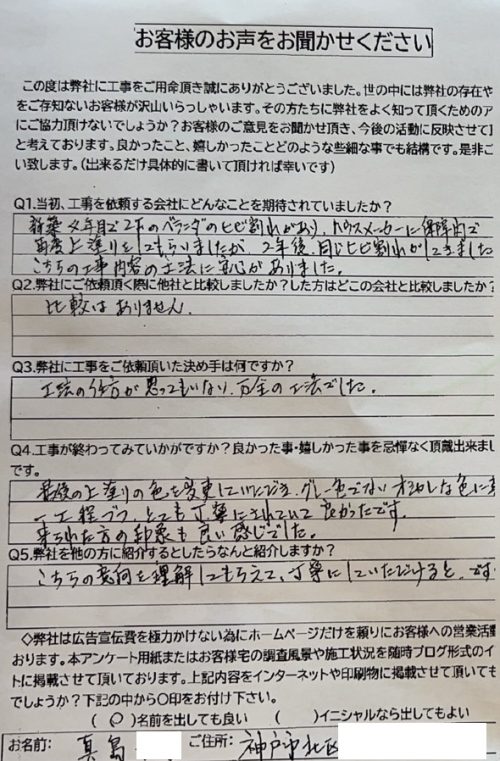 お客様のお声をお聞かせください
この度は弊社に工事をご用命頂き誠にありがとうございました。世の中には弊社の存在や
をご存知ないお客様が沢山いらっしゃいます。その方たちに弊社をよく知って頂くためのア
にご協力頂けないでしょうか?お客様のご意見をお聞かせ頂き、今後の活動に反映させて
と考えております。良かったこと、嬉しかったことどのような些細な事でも結構です。是非ご
い致します。(出来るだけ具体的に書いて頂ければ幸いです)
Q1.当初、工事を依頼する会社にどんなことを期待されていましたか?
新築 年目で2Fのベランダのヒビ割れがあり、ハウスメーカーに保障内で
再度上塗りをしてもらいましたが、2年後、同じヒビ割れがしてきました
こちらの工事内容の工法に安心がありました。
Q2.弊社にご依頼頂く際に他社と比較しましたか?した方はどこの会社と比較しましたか?
比較はありません.
Q3.弊社に工事をご依頼頂いた決め手は何ですか?
工法の仕方が思ってもいない、万全の工法でした。
Q4.工事が終わってみていかがですか?良かった事・嬉しかった事を忌憚なく頂戴出来まし
です。
最後の上塗りの色を変更していただき、グレー色でないオシャレな色に
一工程ずつ、とても丁寧にされていて良かったです。
来られた方の印象も良い感じでした。
Q5.弊社を他の方に紹介するとしたらなんと紹介しますか?
こちらの意向を理解してもらえて、丁寧にしていただけると、です
◇弊社は広告宣伝費を極力かけない為にホームページだけを頼りにお客様への営業活動
おります。本アンケート用紙またはお客様宅の調査風景や施工状況を随時ブログ形式のイ
トに掲載させて頂いております。上記内容をインターネットや印刷物に掲載させて頂いても
でしょうか?下記の中から〇印をお付け下さい。
(〇)名前を出しても良い ( )イニシャルなら出してもよい
お名前: 真島 ご住所: 神戸市北区